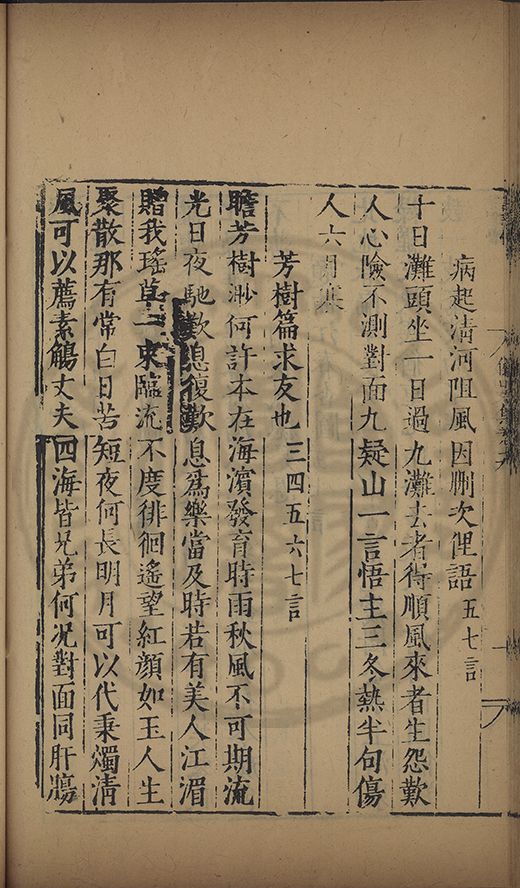 病起清河阻風因刪次俚語五七言
十日灘頭坐一日過九灘去者得順風來者生怨歎
人心險不測對面九疑山一言悟主三冬熱半句傷
人六月寒
芳樹篇求友也三四五六七言
瞻芳樹渺何許本在海濱發育時雨秋風不可期流
光日夜馳歎息復歎息為樂當及時若有美人江湄
贈我瑤草一束臨流不度徘徊遙望紅顏如玉人生
聚散那有常白日苦短夜何長明月可以代秉燭清
風可以薦素觴丈夫四海皆兄弟何況對面同肝膓